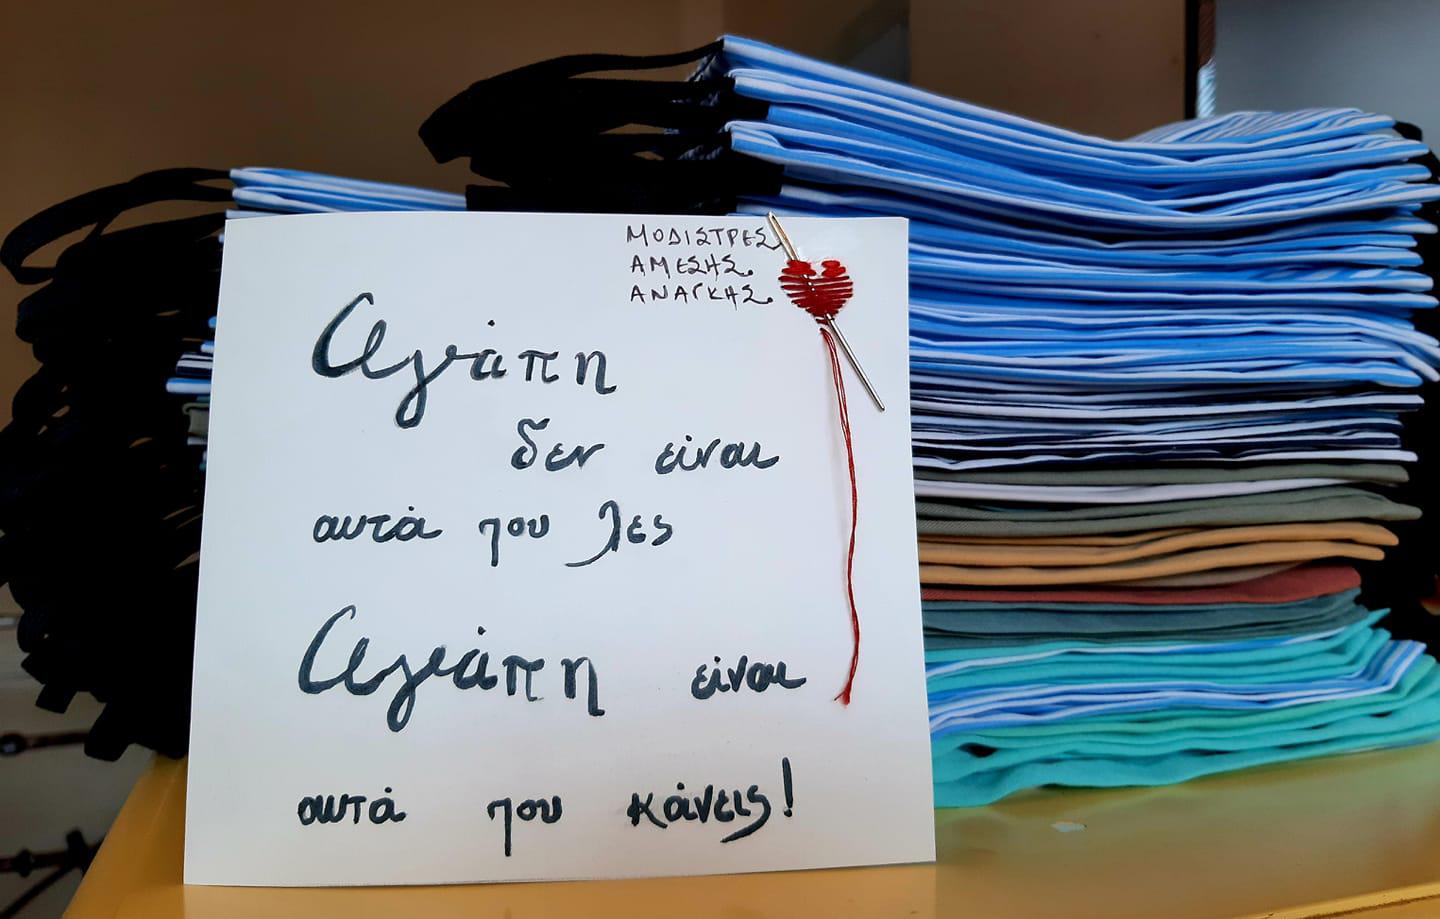 ΜΟΔΙΣΤΡΕΣ
ΑΜΕΣΗΣ
ΑΝΑΓΚΗΣ
Αγάπη
δεν είναι
αυτά που λες
Αγάπη είναι
αυτά που κάνεις!